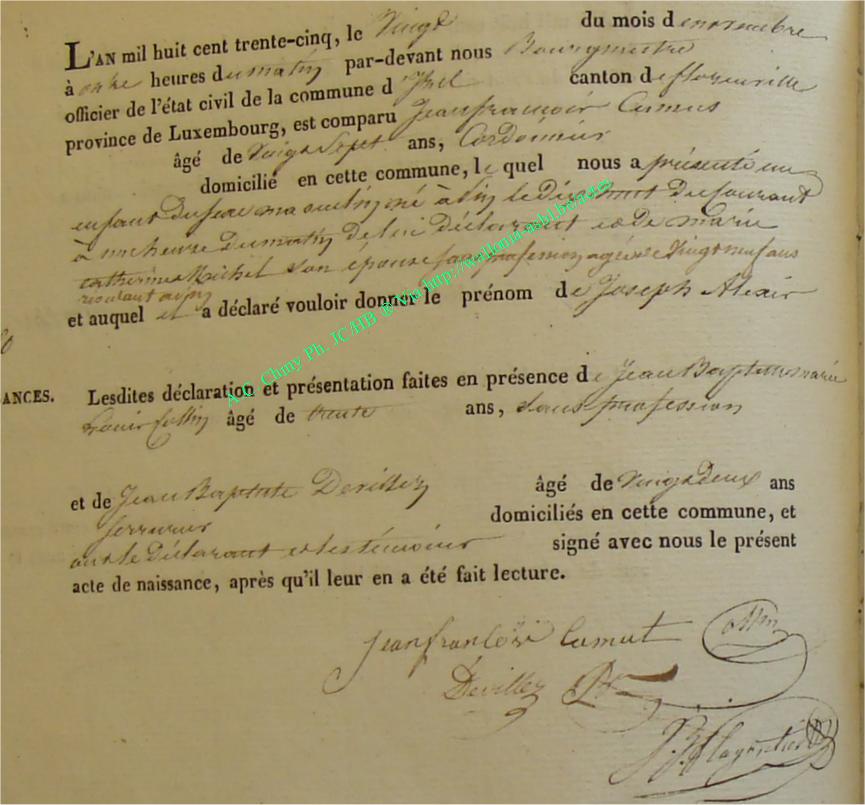 L'AN mil huit cent trente-cinq, le Vingt du mois de novembre
à onze heures du matin par-devant nous Bourgmestre
officier de l'état civil de la commune d'Izel canton de florenville
province de Luxembourg, est comparu Jean françois Camus
âgé de Vingt Sept ans, Cordonnier
domicilié en cette commune, le quel nous a présenté un
enfant du sexe masculin, né à Izel le Dix huit du Courant
à une heure du matin de lui déclarant et de marie
catherine Michel Son épouse sans profession agée de Vingt neuf ans
residant avec
et auquel il a déclaré vouloir donner le prénom de Joseph Alexis
ANCES. Lesdites déclaration et présentation faites en présence de Jean Baptiste marie
Louis Collin âgé de trente ans, sans profession
et de Jean Baptiste Devillez âgé de Vingt Deux ans
Serrurier domiciliés en cette commune, et
ont le Déclarant et les témoins signé avec nous le présent
acte de naissance, après qu'il leur en a été fait lecture.
jean françois Camut
Devillez
A.C. Chiny Ph. JC/HB ® via http://wallonia-asbl.be/actes